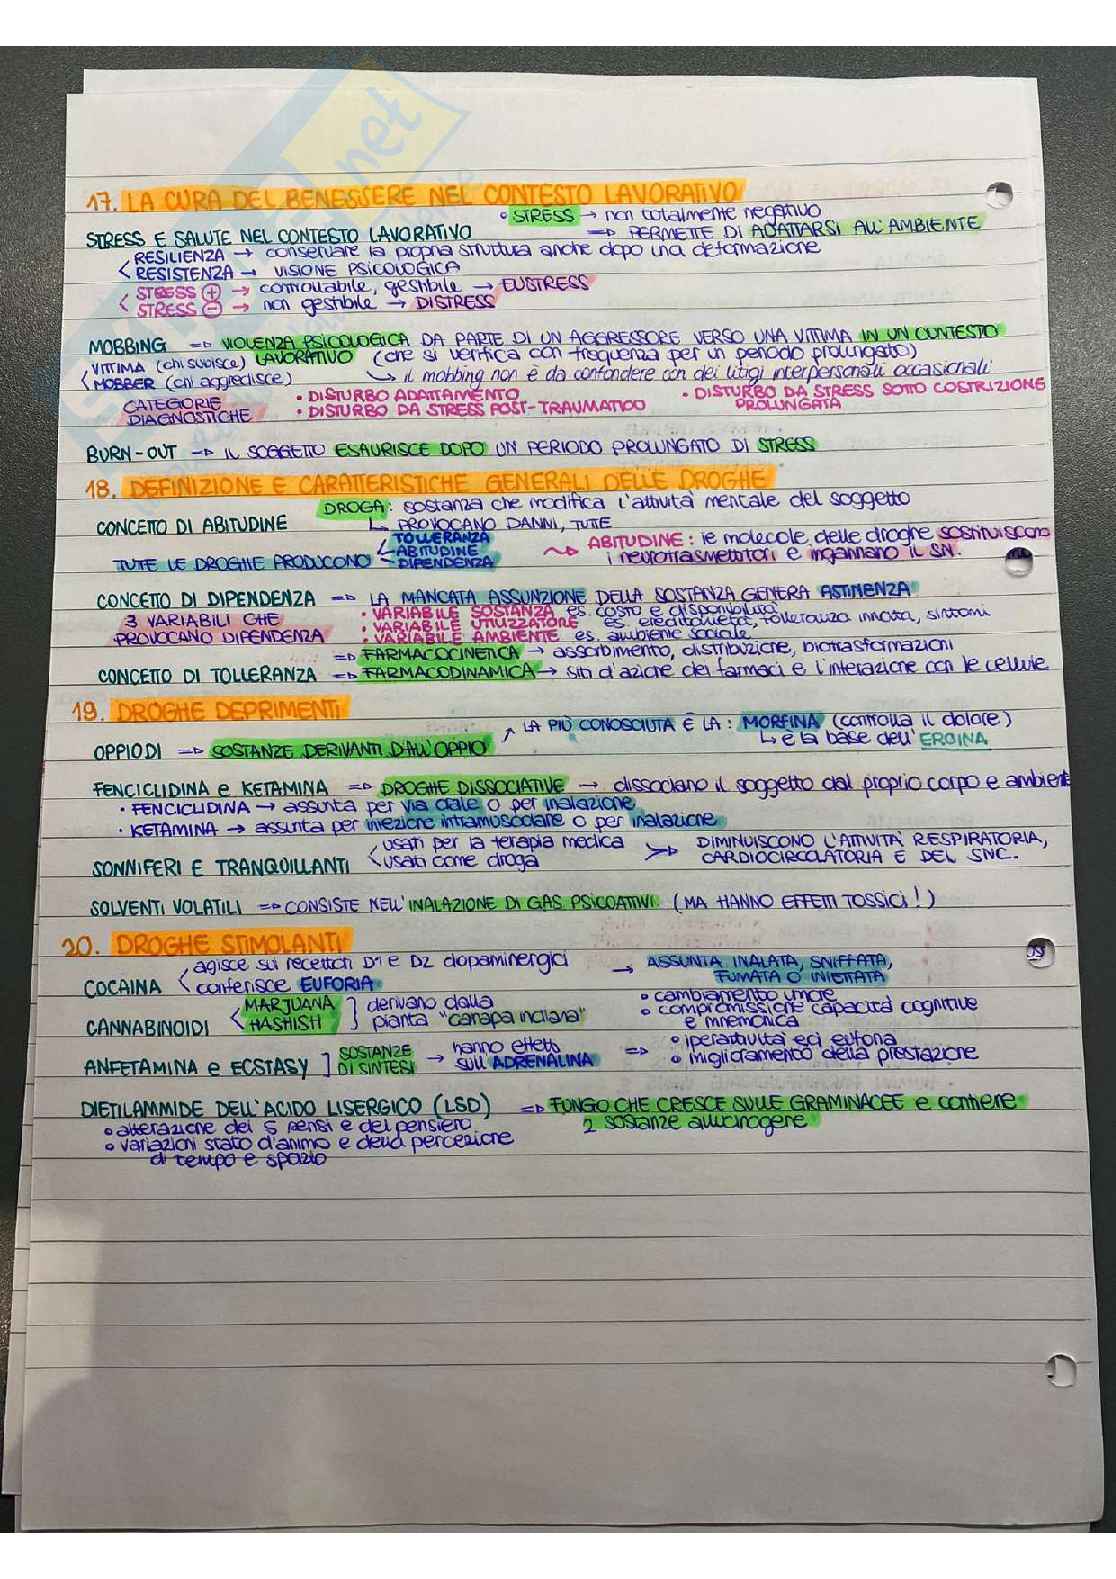 17. LA CURA DEL BENESSERE NEL CONTESTO LAVORATIVO
• STRESS → non totalmente negativo
STRESS E SALUTE NEL CONTESTO LAVORATIVO ⇒ PERMETTE DI ADATTARSI ALL'AMBIENTE
RESILIENZA → conservare la propria struttura anche dopo una deformazione
RESISTENZA → VISIONE PSICOLOGICA
STRESS + → controllabile, gestibile → EUSTRESS
STRESS - → non gestibile → DISTRESS
MOBBING ⇒ VIOLENZA PSICOLOGICA DA PARTE DI UN AGGRESSORE VERSO UNA VITTIMA IN UN CONTESTO
VITTIMA (chi subisce) LAVORATIVO (che si verifica con frequenza per un periodo prolungato)
MOBBER (chi aggredisce) ↳ il mobbing non è da confondere con dei litigi interpersonali occasionali
CATEGORIE DIAGNOSTICHE • DISTURBO ADATTAMENTO • DISTURBO DA STRESS SOTTO COSTRIZIONE PROLUNGATA
• DISTURBO DA STRESS POST-TRAUMATICO
BURN-OUT ⇒ IL SOGGETTO ESAURISCE DOPO UN PERIODO PROLUNGATO DI STRESS
18. DEFINIZIONE E CARATTERISTICHE GENERALI DELLE DROGHE
DROGA: sostanza che modifica l'attività mentale del soggetto
CONCETTO DI ABITUDINE ↳ PROVOCANO DANNI, TUTE
TOLLERANZA
TUTE LE DROGHE PRODUCONO ABITUDINE
DIPENDENZA
ABITUDINE: le molecole delle droghe sostituiscono
i neurotrasmettitori e ingannano il SN.
CONCETTO DI DIPENDENZA ⇒ LA MANCATA ASSUNZIONE DELLA SOSTANZA GENERA ASTINENZA
3 VARIABILI CHE PROVOCANO DIPENDENZA • VARIABILE SOSTANZA es. costo e disponibilità
• VARIABILE UTILIZZATORE es. ereditarietà, tolleranza innata, sintomi
• VARIABILE AMBIENTE es. ambiente sociale
⇒ FARMACOCINETICA → assorbimento, distribuzione, biotrasformazioni
CONCETTO DI TOLLERANZA ⇒ FARMACODINAMICA → siti d'azione dei farmaci e l'interazione con le cellule
19. DROGHE DEPRIMENTI
LA PIÙ CONOSCIUTA È LA: MORFINA (controlla il dolore)
OPPIOIDI ⇒ SOSTANZE DERIVANTI DALL'OPPIO ↳ è la base dell'EROINA
FENCICLIDINA e KETAMINA ⇒ DROGHE DISSOCIATIVE → dissociano il soggetto dal proprio corpo e ambiente
• FENCICLIDINA → assunta per via orale o per inalazione
• KETAMINA → assunta per iniezione intramuscolare o per inalazione
SONNIFERI E TRANQUILLANTI usati per la terapia medica
usati come droga
DIMINUISCONO L'ATTIVITÀ RESPIRATORIA,
CARDIOCIRCOLATORIA E DEL SNC.
SOLVENTI VOLATILI ⇒ CONSISTE NELL'INALAZIONE DI GAS PSICOATTIVI (MA HANNO EFFETTI TOSSICI!)
20. DROGHE STIMOLANTI
COCAINA agisce sui recettori D1 e D2 dopaminergici → ASSUNTA INALATA, SNIFFATA,
conferisce EUFORIA FUMATA O INIETTATA
CANNABINOIDI MARJUANA HASHISH ] derivano dalla pianta "canapa indiana"
• cambiamento umore
• compromissione capacità cognitive
e mnemonica
ANFETAMINA e ECSTASY ] SOSTANZE DI SINTESI → hanno effetto sull'ADRENALINA ⇒ • iperattività ed euforia
• miglioramento della prestazione
DIETILAMMIDE DELL'ACIDO LISERGICO (LSD) ⇒ FUNGO CHE CRESCE SULLE GRAMINACEE e contiene
2 sostanze allucinogene
• alterazione dei 5 sensi e del pensiero
• variazioni stato d'animo e della percezione
di tempo e spazio